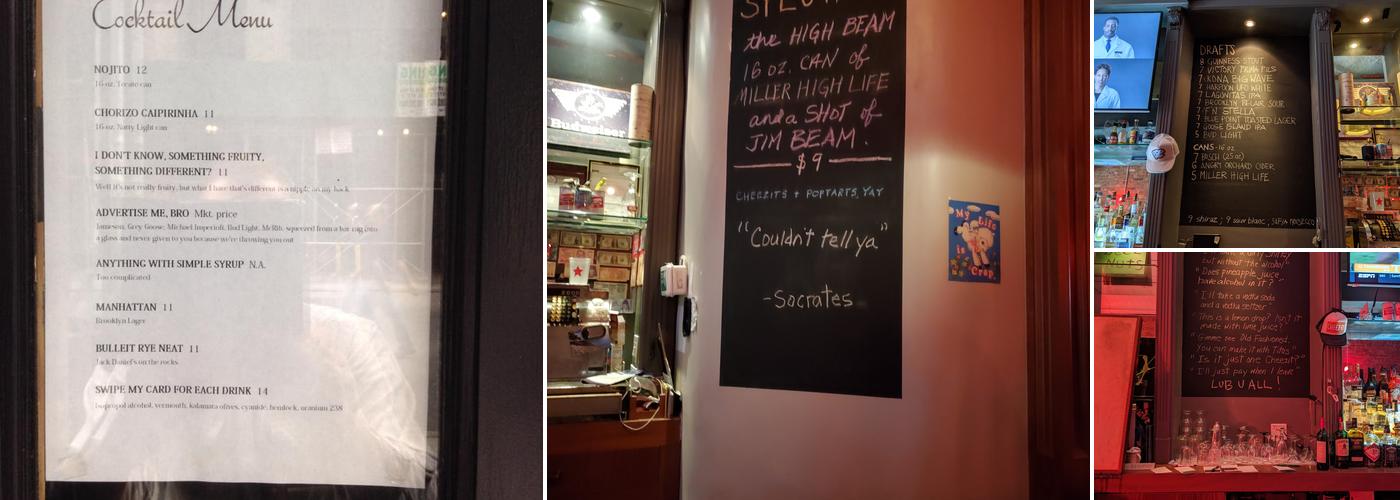 Cocktail Menu
NOJITO 12
16 oz. Tecate can
CHORIZO CAIPIRINHA 11
16 oz. Natty Light can
I DON'T KNOW, SOMETHING FRUITY,
SOMETHING DIFFERENT? 11
Well it's not really fruity, but what I have that's different is a nipple on my back
ADVERTISE ME, BRO Mkt. price
Jameson, Grey Goose, Michael Imperioli, Bud Light, McRib, squeezed from a bar rag into
a glass and never given to you because we're throwing you out
ANYTHING WITH SIMPLE SYRUP N.A.
Too complicated
MANHATTAN 11
Brooklyn Lager
BULLEIT RYE NEAT 11
Jack Daniel's on the rocks
SWIPE MY CARD FOR EACH DRINK 14
Isopropol alcohol, vermouth, kalamata olives, cyanide, hemlock, uranium 238
Budweiser
the HIGH BEAM
16 oz. CAN of
MILLER HIGH LIFE
and a SHOT of
JIM BEAM.
$9
CHEEZITS + POPTARTS, YAY
"Couldn't tell ya"
-Socrates
My Life
is
Crap
DRAFTS
8 GUINNESS STOUT
7 VICTORY PRIMA PILS
7 KONA BIG WAVE
7 HARPOON UFO WHITE
7 LAGUNITAS IPA
7 BROOKLYN BEL AIR SOUR
7 STELLA
7 BLUE POINT TOASTED LAGER
7 GOOSE ISLAND IPA
5 BUD LIGHT
CANS - 16 oz
7 BUSCH (25 oz)
6 ANGRY ORCHARD CIDER
5 MILLER HIGH LIFE
9 shiraz; 9 sauv blanc;
but without the alcohol?
"Does pineapple juice
have alcohol in it?"
"I'll take a vodka soda
and a vodka seltzer."
"This is a lemon drop? Isn't it
made with lime juice?"
"Gimme one Old Fashioned.
You can make it with Titos."
"Is it just one Cheezit?"
"I'll just pay when I leave"
LUB U ALL!
ESPN